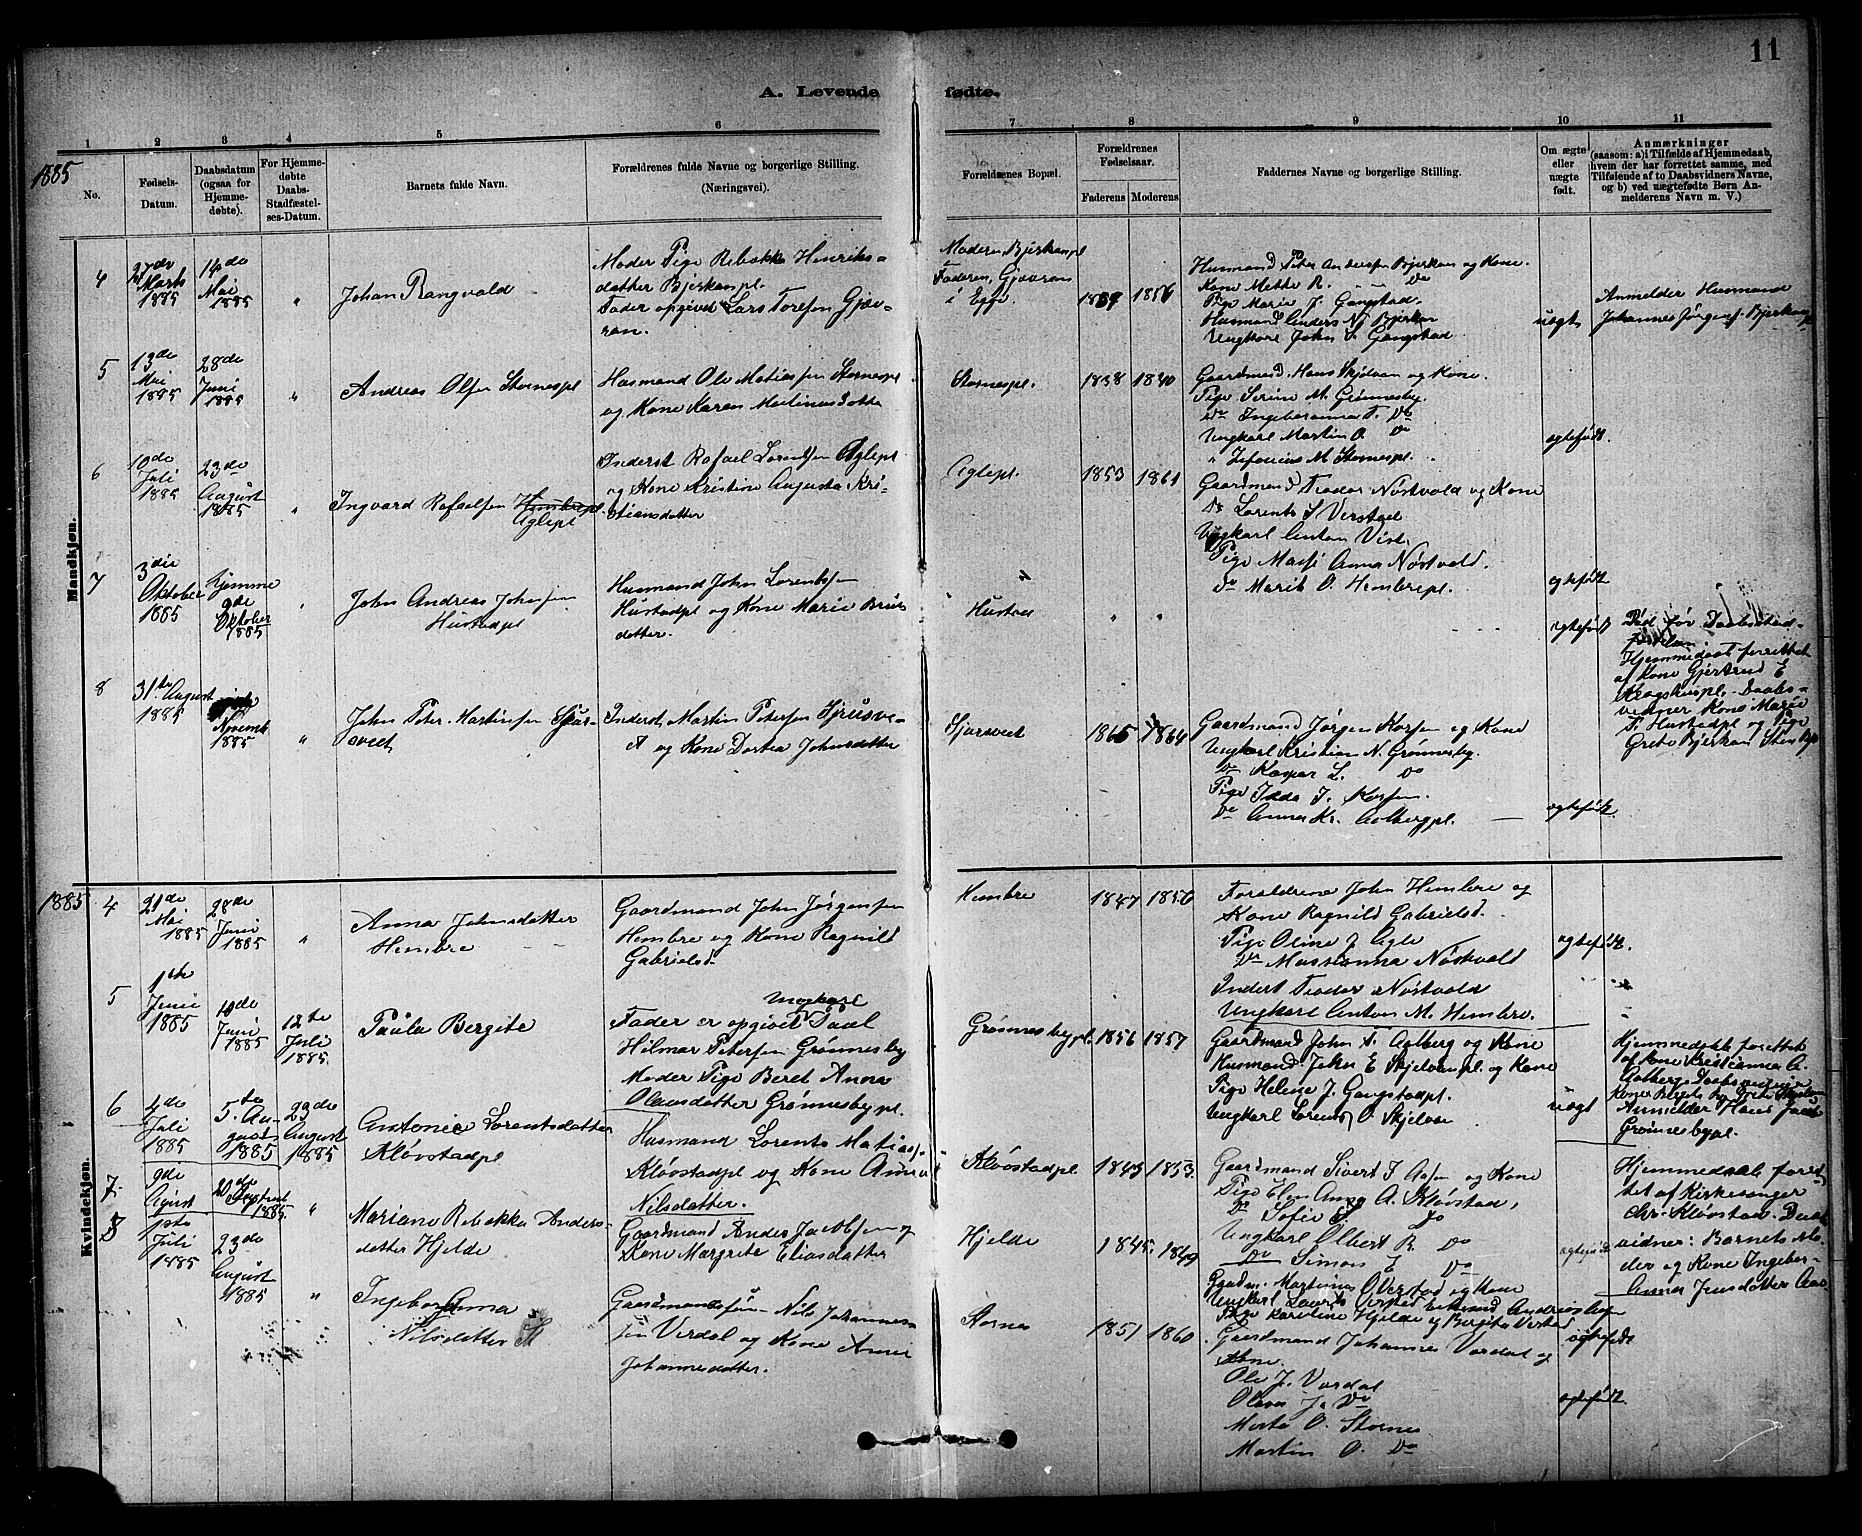 11
A. Levende fødte.
1 2 3 4 5 6 7 8 9 10 11
1885
No.
Fødsels-Datum.
Daabsdatum (ogsaa for Hjemmedøbte).
For Hjemmedøbte Daabs-Stadfæstelses-Datum.
Barnets fulde Navn.
Forældrenes fulde Navne og borgerlige Stilling. (Næringsvei).
Forældrenes Bopæl.
Forældrenes Fødselsaar.
Faderens Moderens
Faddernes Navne og borgerlige Stilling.
Om ægte eller uægte født.
Anmærkninger
(saasom: a) i Tilfælde af Hjemmedaab, hvem der har forrettet samme, med Tilføiende af to Daabsvidners Navne, og b) ved uægtefødte Børn Anmelderens Navn m. V.)
Mandkjøn.
4
27de Marts 1885
14de Mai 1885
"
Johan Rangvald
Moder Pige Rebekka Henriks-
datter Bjerkanpl.
Fader opgivet Lars Toresen Gjæv-
ran.
Moderen Bjerkanpl
Faderen, Gjævran
i Egge.
1856
Husmand Peter Andersen Bjerkan og Kone.
Kone Mette R. Do
Pige Marie J. Gangstad.
Husmand Anders N. Bjerkan
Ungkarl John Gangstad
uægt
Anmelder Husmand
Johannes Jørgens. Bjerkanpl
5
13de Mai 1885
28de Juni 1885
"
Andreas Olsen Stornespl
Husmand Ole Matiassen Stornespl
og Kone Karen Martinusdatter
Stornespl.
1838 1840
Gaardmand Hans Skjelvan og Kone.
Pige Serine M. Grønnesby.
Do Ingeboranna T. Do
Ungkarl Martin O. Do
" Zefanias M. Stornespl.
ægtefødt.
6
10de Juli 1885
23de August 1885
"
Ingvard Rafaelsen Hembrepl
Aglepl
Inderst Rafael Lorentsen Aglepl
og Kone Kristine Augusta Kri-
stiansdatter
Aglepl.
1853 1861
Gaardmand Teodor Nøstvold og Kone
Do Lorents S Verstad
Ungkarl Anton Vist.
Pige Massi Anna Nøstvold.
Do Marit O. Hembrepl.
ægtefødt
7
3die Oktober 1885
Hjemme 9de Oktober 1885
"
John Andreas Johnsen
Hustadpl
Husmand John Lorentsen
Hustadpl og Kone Marie Brus
datter.
Hustad
" "
ægtefødt
Død før Daabsstad-
Hjemmedaab forrettet
af Kone Gjertrud E
Daabs-
vidner Kone Marie
Hustadpl og Pige
Grete Bjerkan
8
31te August 1885
Novemb 1885
"
John Peter Martinsen Hjus-
sveet
Inderst Martin Petersen Hjusve-
et og Kone Dortea Johnsdatter
Hjusveet
1865 1864
Gaardmand Jørgen Korsen og Kone
Ungkarl Kristian N. Grønnesby.
Do Kaspar L. Do
Pige Idda J. Korsen.
Do Anna Kr. Aalbergpl.
ægtefødt.
Kvindekjøn.
1885
4
21de Mai 1885
28de Juni 1885
"
Anna Johnsdatter
Hembre
Gaardmand John Jørgensen
Hembre og Kone Ragnild
Gabrielsd.
Hembre
1847 1856
Forældrene John Hembre og
Kone Ragnild Gabrielsd.
Pige Oline J Agle
Do Massianna Nøstvold
Inderst Teodor Nøstvold
Ungkarl Anton M. Hembre.
ægtefødt.
5
1te Juni 1885
10de Juni 1885
12te Juli 1885.
Paula Bergite
Ungkarl
Fader er opgivet Paul
Hilmar Petersen Grønnesby
Moder Pige Beret Anna
Olausdatter Grønnesbypl.
Grønnesbypl.
1856 1857
Gaardmand John T. Aalberg og Kone
Husmand John E Skjelvanpl. og Kone
Pige Helene J. Gangstadpl.
Ungkarl Lorents O. Skjelvan
uægt
Hjemmedaab forrettet
af Kone Kristianna A.
Aalberg. Daabsvidner
Anmelder Hans
Grønnesbypl.
6
4de Juli 1885
5te August 1885
23de August 1885
Antonie Lorentsdatter
Kløvstadpl
Husmand Lorents Matias.
Kløvstadpl og Kone Anna
Nilsdatter.
Kløvstadpl
1843 1853.
Gaardmand Sivert J Aasen og Kone
Pige Elen Anna A. Kløvstad,
Do Sofie Do
Ungkarl Albert R. Do
Do Simon E Do
ægtefødt
Hjemmedaab forret-
tet af Kirkesanger
Chr. Kløvstad. Daabs
vidner: Barnets Mo-
der og Kone Ingebor-
Anna Jensdatter
7.
9de August
20de Septemb 1885.
"
Mariane Rebekka Anders-
datter Hjelde
Gaardmand Anders Jacobsen og
Kone Margrete Eliasdatter
Hjelde
1845. 1849
Gaardm. Martinus Overstad og Kone
ægtefødt
8
1ste Juli 1885
23de August 1885
"
Ingebor Anna
Nilsdatter
Gaardmandssøn Nils Johannes-
sen Verdal og Kone Anna
Johannesdatter.
Stornes
1851 1860.
Gaardmand Johannes Vardal og
Kone.
Ole J. Vardal
Olava J. Do
Marta O. Stornes
Martin O. Do
ægtefødt.